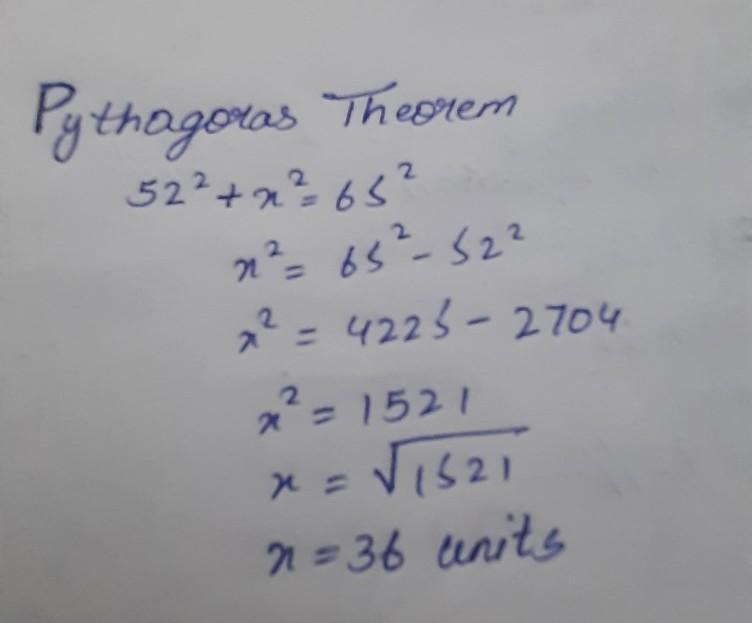 Pythagoras Theorem
52² + x² = 65²
x² = 65² - 52²
x² = 4225 - 2704
x² = 1521
x = √1521
x = 36 units